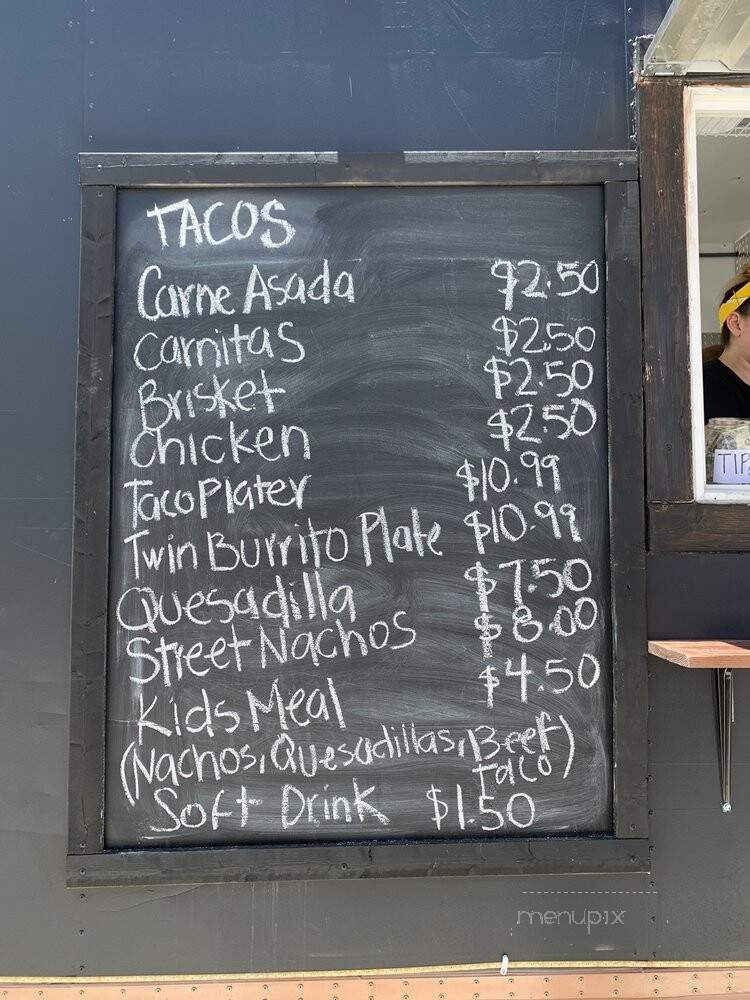 TACOS
Carne Asada $2.50
Carnitas $2.50
Brisket $2.50
Chicken $2.50
Taco Plater $10.99
Twin Burrito Plate $10.99
Quesadilla $7.50
Street Nachos $8.00
Kids Meal $4.50
(Nachos, Quesadillas, Beef
Taco)
Soft Drink $1.50
TIP
menupix